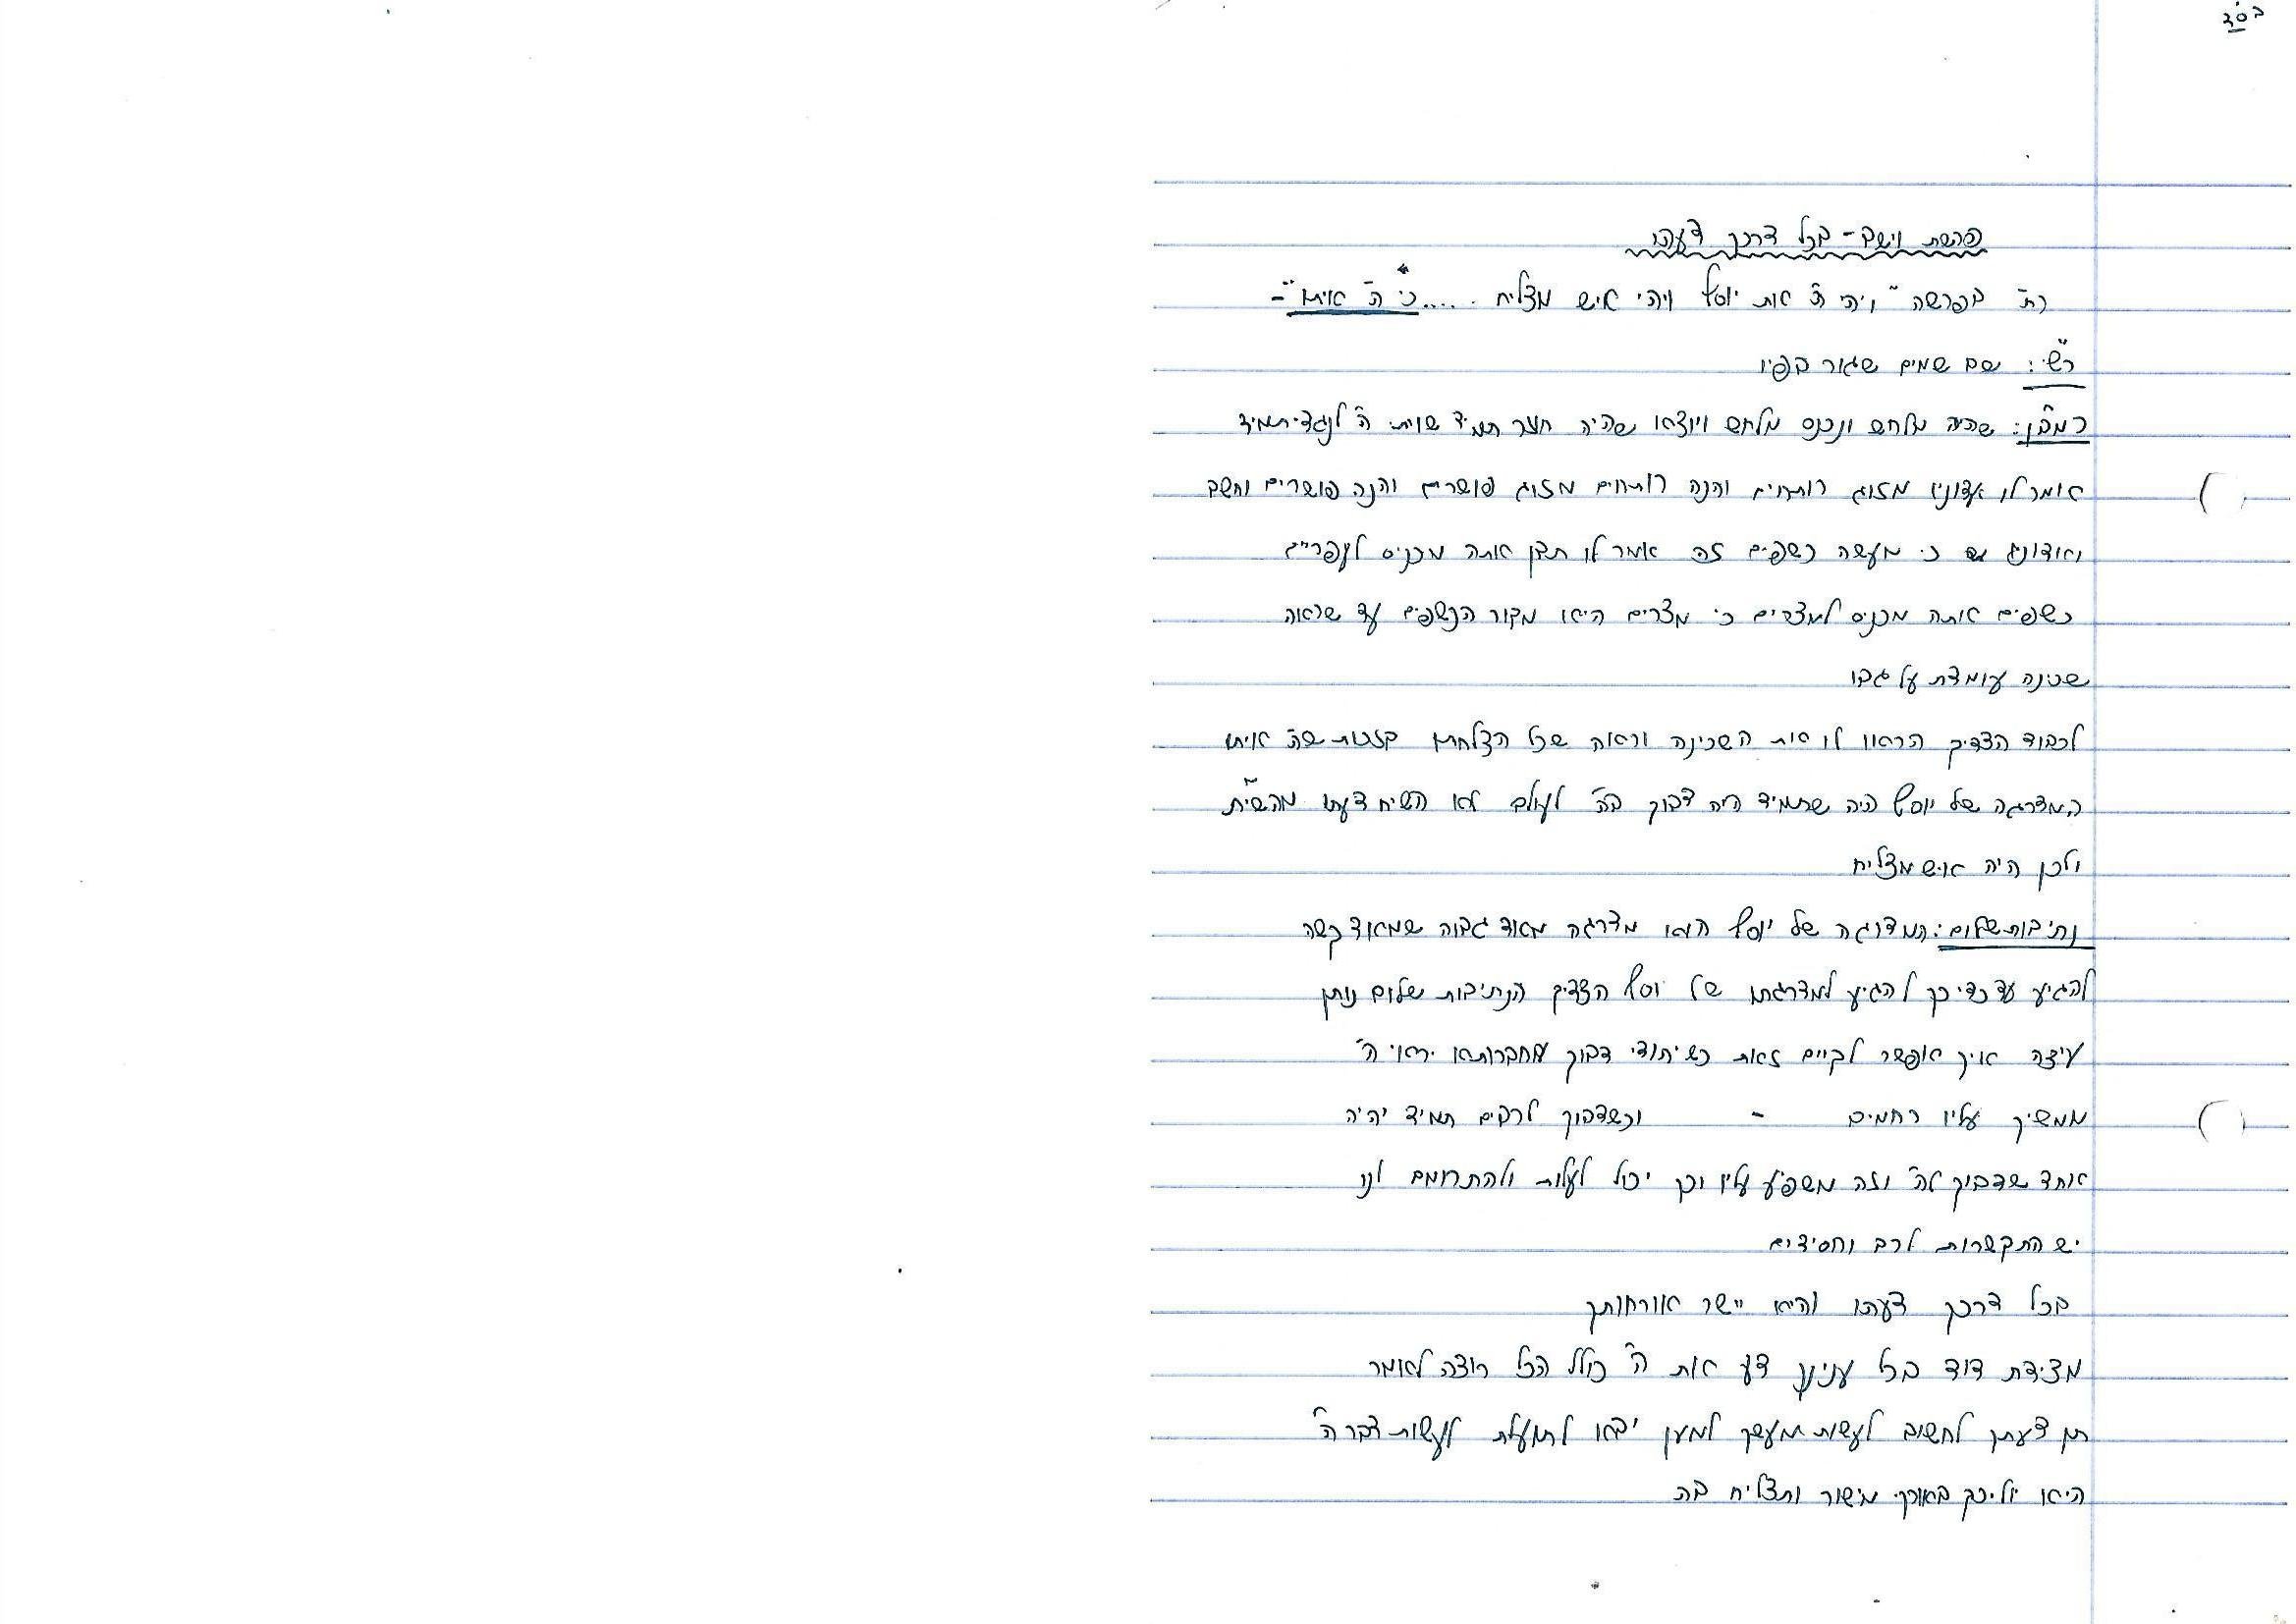 בס"ד
פרשת וישב - בכל דרכך דעהו
רת' בפרשה "ויהי ה' את יוסף ויהי איש מצליח ..... כי ה' איתו" -
רש"י: שם שמים שגור בפיו
רמב"ן: שהיה מלחש ונכנס מלחש ויוצא שהיה תמיד שויתי ה' לנגדי תמיד
אומר לו אדוניו מזוג רותחים והנה רותחים מזוג פושרים והנה פושרים וחשב
אדוניו כי מעשה כשפים זה אמר לו תבן אתה מכניס לעפריים
כשפים אתה מכניס למצרים כי מצרים היא מקור הכשפים עד שראה
שכינה עומדת על גבו
לכבוד הצדיק הראו לו את השכינה וראה שכל הצלחתו בזכות שה' איתו
המדרגה של יוסף היה שתמיד היה דבוק בה' לעולם לא השיח דעתו מהשי"ת
ולכן היה איש מצליח
נתיבות שלום: המדרגה של יוסף היא מדרגה מאוד גבוה שמאוד קשה
להגיע עד כדי כך להגיע למדרגתו של יוסף הצדיק הנתיבות שלום נותן
עיצה איך אפשר לקיים זאת כשיהודי דבוק מחברותא יראי ה'
ממשיך עליו רחמים - וכשדבוק לרבים תמיד יהיה
אחד שדבוק לה' וזה משפיע עליו וכך יכול לעלות ולהתרומם לנו
יש התקשרות לרב וחסידים
בכל דרכך דעהו והיא יישר אורחותך
מצידת דוד בכל ענינך דע את ה' כולל הכל רוצה לאמר
תן דעתך לחשוב לעשות מעשך למען יבאו לתועלת לעשות דבר ה'
היא יוליכך באורך מישור ותצליח בה